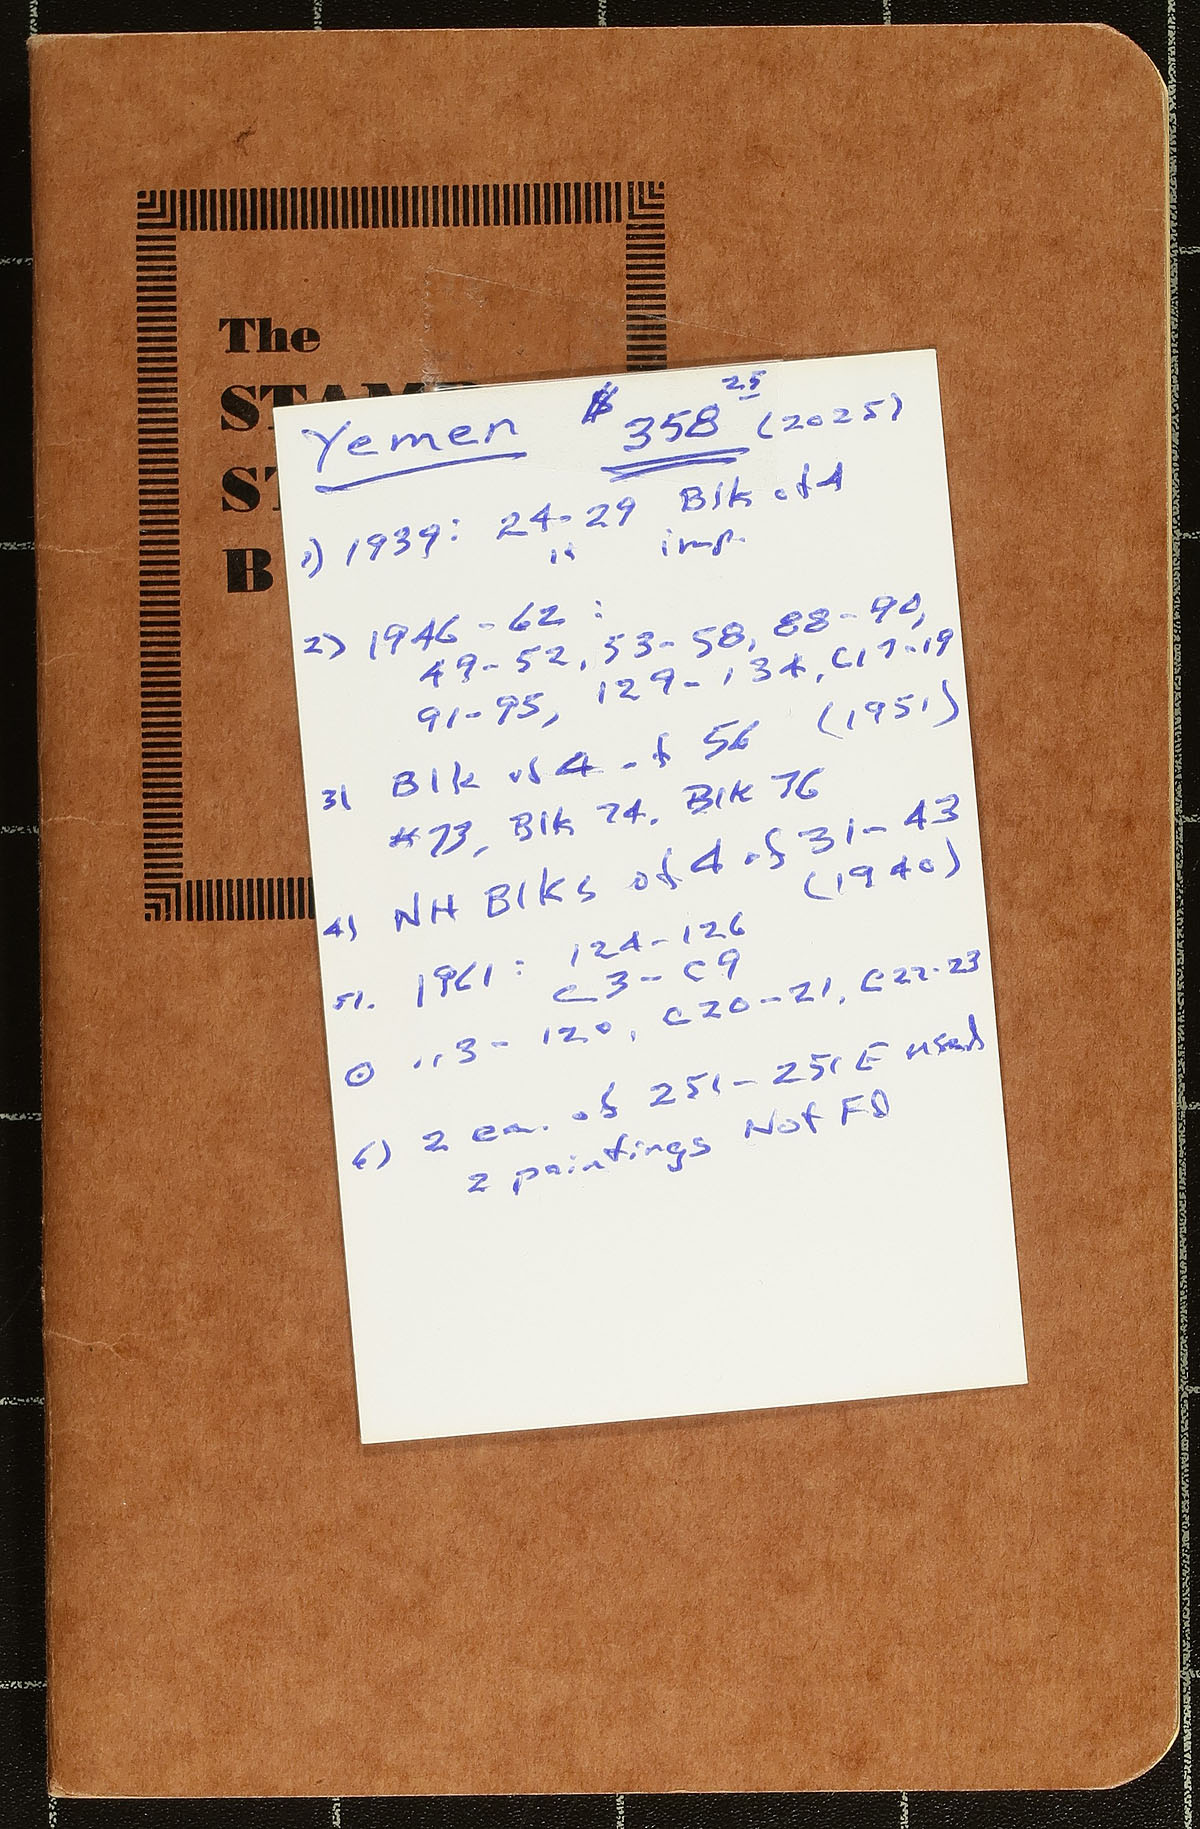 The
STAMP
ST
B
Yemen $ 358 25 (2025)
1) 1939: 24-29 Blk of 4
" imp.
2) 1946-62:
49-52, 53-58, 88-90,
91-95, 129-134, C17-19
3) Blk of 4 of 56 (1951)
#73, Blk 74, Blk 76
4) NH Blks of 4 of 31-43
(1940)
5). 1961: 124-126
C3-C9
113-120, C20-21, C22-23
6) 2 ea. of 251-251E used
2 paintings Not FD